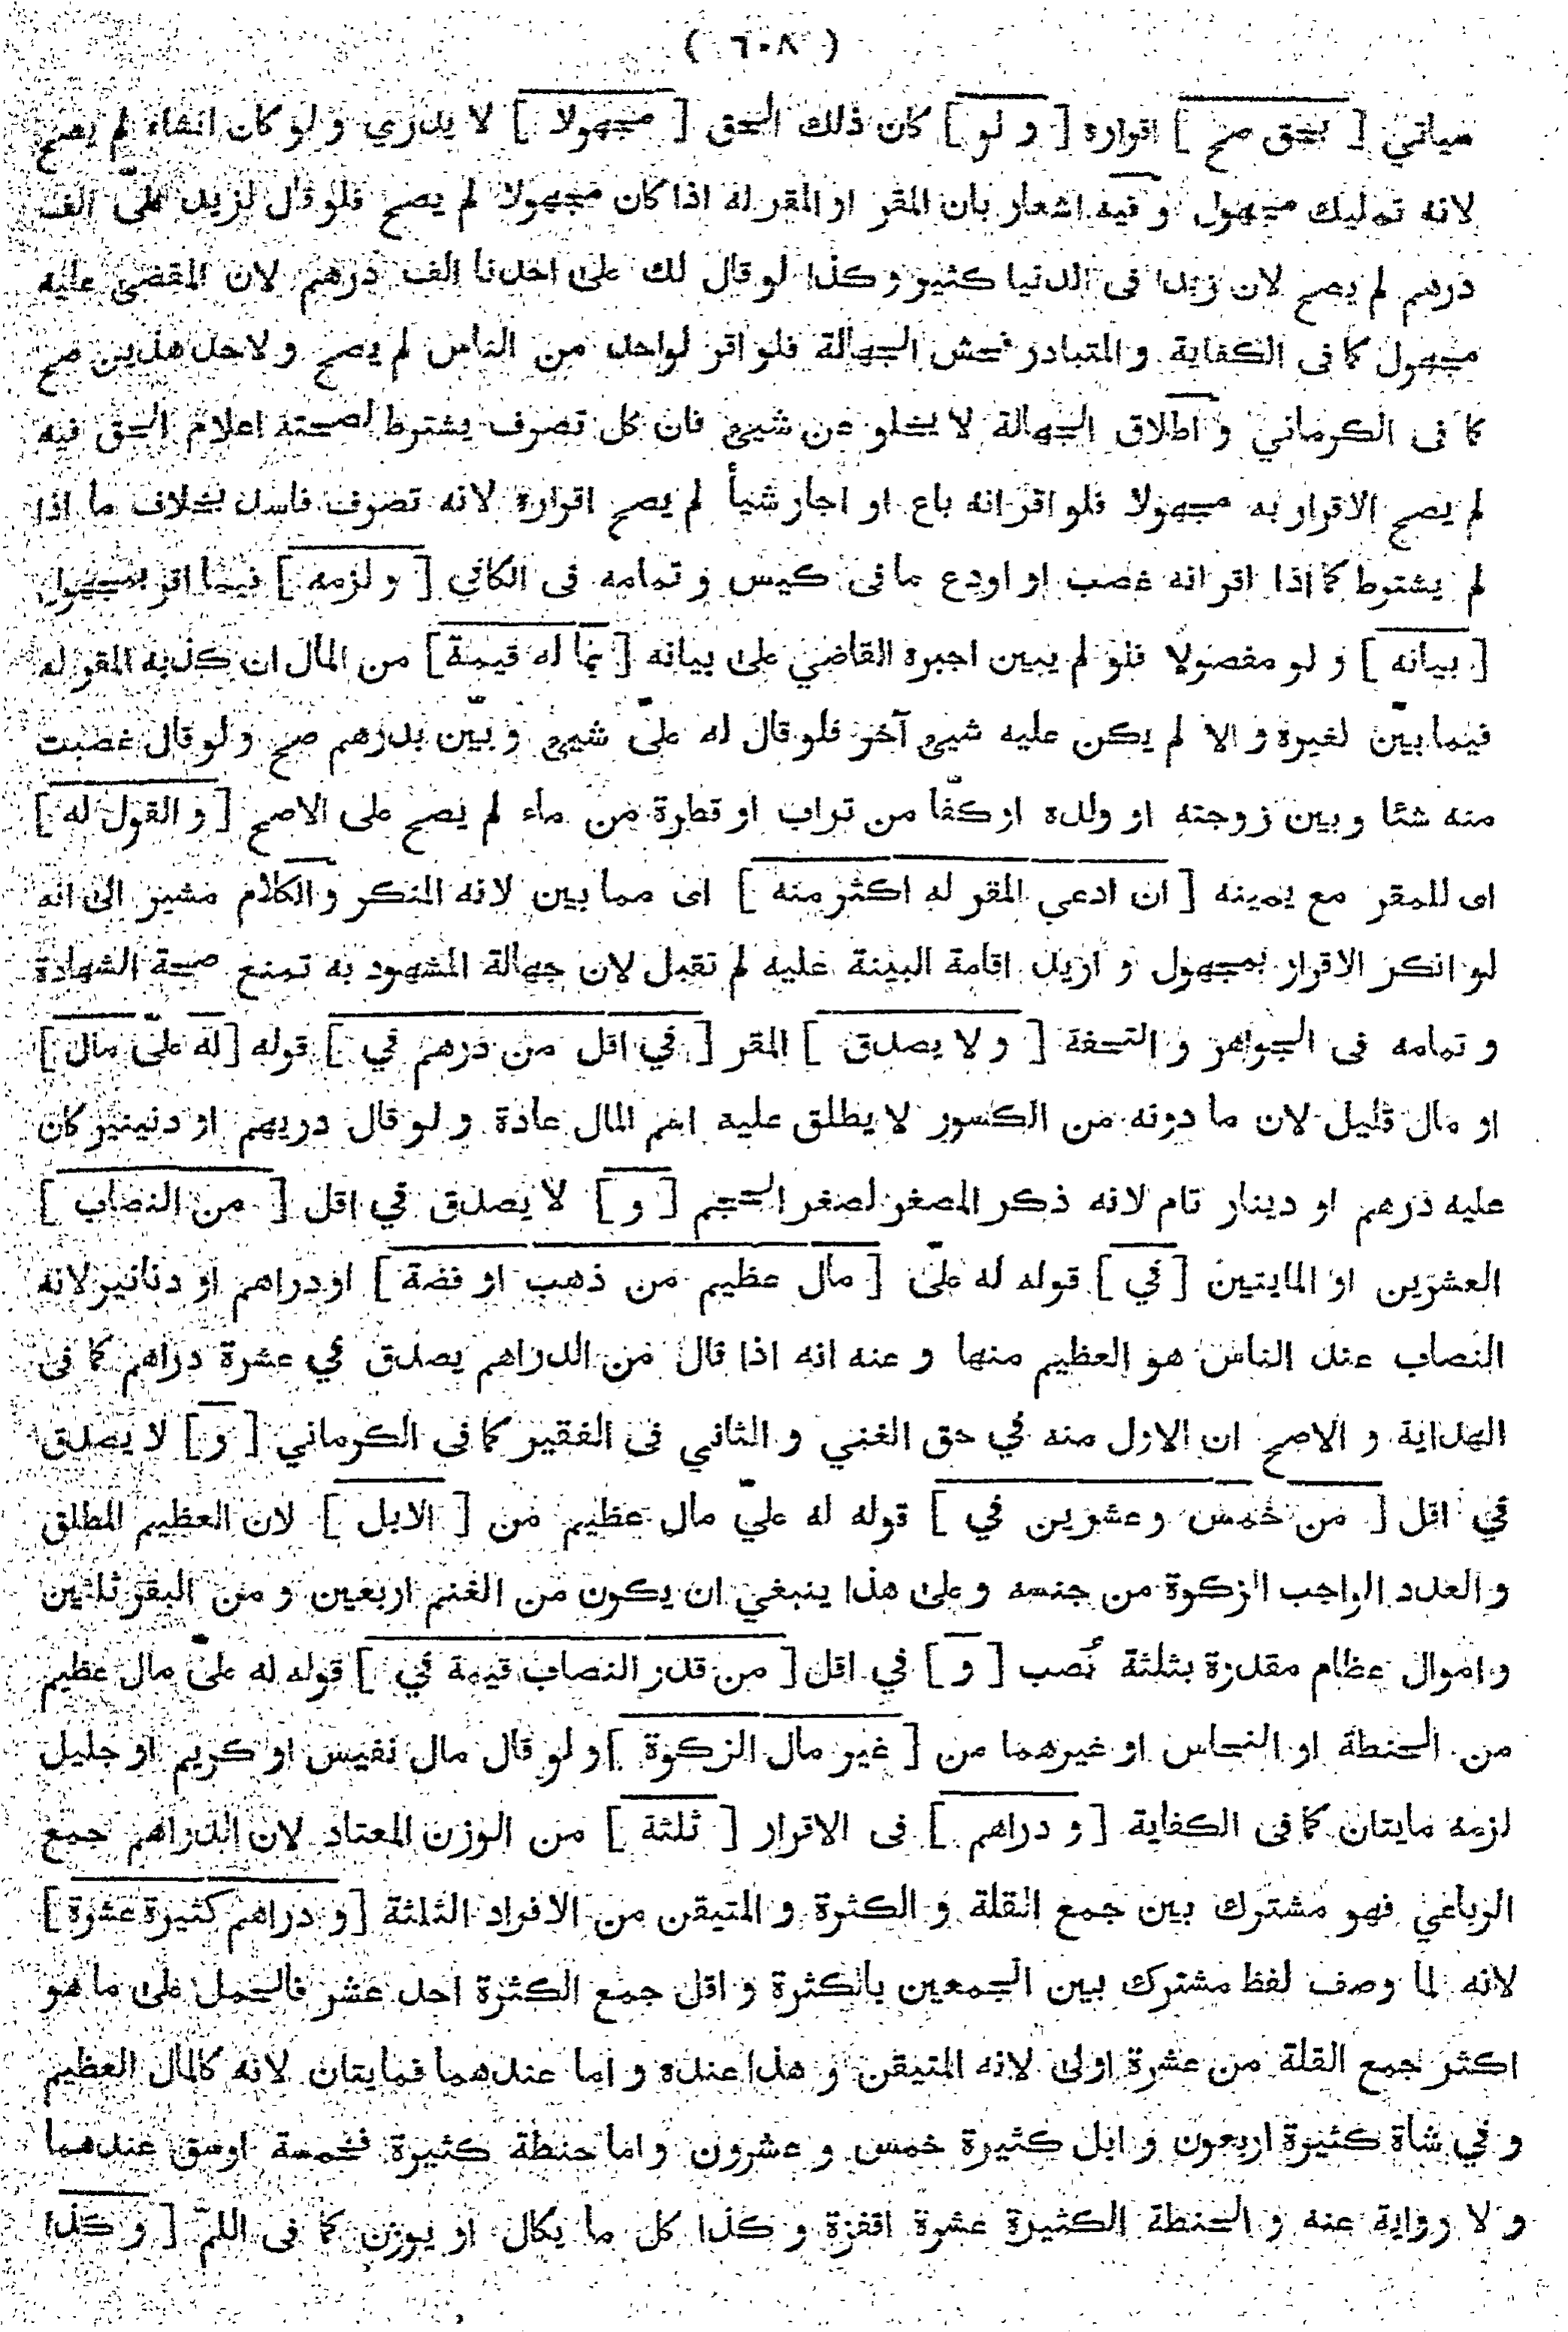 ( ٦٠٨ )
سياتي [ بحق صح ] اقراره [ و لو ] كان ذلك الحق [ مجهولا ] لا يدري و لو كان انشاء لم يصح
لانه تمليك مجهول و فيه اشعار بان المقر او المقر له اذا كان مجهولا لم يصح فلو قال لزيد علىّ الف
درهم لم يصح لان زيدا فى الدنيا كثير و كذا لو قال لك على احدنا الف درهم لان المقضى عليه
مجهول كما فى الكفاية و المتبادر فحش الجهالة فلو اقر لواحد من الناس لم يصح و لاحد هذين صح
كما فى الكرماني و اطلاق الجهالة لا يخلو عن شيئ فان كل تصرف يشترط لصحته اعلام الحق فيه
لم يصح الاقرار به مجهولا فلو اقر انه باع او اجار شيأ لم يصح اقراره لانه تصرف فاسد بخلاف ما اذا
لم يشترط كما اذا اقر انه غصب او اودع ما فى كيس و تمامه فى الكافي [ و لزمه ] فيما اقر بمجهول
[ بيانه ] و لو مفصولا فلو لم يبين اجبره القاضي على بيانه [ بما له قيمة ] من المال ان كذبه المقر له
فيما بيّن لغيره و الا لم يكن عليه شيئ آخر فلو قال له علىّ شيئ و بيّن بدرهم صح و لو قال غصبت
منه شئا و بين زوجته او ولده او كفّا من تراب او قطرة من ماء لم يصح على الاصح [ و القول له ]
اى للمقر مع يمينه [ ان ادعي المقر له اكثر منه ] اى مما بين لانه المنكر و الكلام مشير الى انه
لو انكر الاقرار بمجهول و اريد اقامة البينة عليه لم تقبل لان جهالة المشهود به تمنع صحة الشهادة
و تمامه فى الجواهر و التحفة [ و لا يصدق ] المقر [ في اقل من درهم في ] قوله [ له علىّ مال ]
او مال قليل لان ما دونه من الكسور لا يطلق عليه اسم المال عادة و لو قال دريهم او دنينير كان
عليه درهم او دينار تام لانه ذكر المصغر لصغر الحجم [ و ] لا يصدق في اقل [ من النصاب ]
العشرين او المايتين [ في ] قوله له علىّ [ مال عظيم من ذهب او فضة ] او دراهم او دنانير لانه
النصاب عند الناس هو العظيم منها و عنه انه اذا قال من الدراهم يصدق في عشرة دراهم كما فى
الهداية و الاصح ان الاول منه في حق الغني و الثاني فى الفقير كما فى الكرماني [ و ] لا يصدق
في اقل [ من خمس و عشرين في ] قوله له عليّ مال عظيم من [ الابل ] لان العظيم المطلق
و العدد الواجب الزكوة من جنسه و على هذا ينبغي ان يكون من الغنم اربعين و من البقر ثلثين
و اموال عظام مقدرة بثلثة نُصب [ و ] في اقل [ من قدر النصاب قيمة في ] قوله له علىّ مال عظيم
من الحنطة او النحاس او غيرهما من [ غير مال الزكوة ] و لو قال مال نفيس او كريم او جليل
لزمه مايتان كما فى الكفاية [ و دراهم ] فى الاقرار [ ثلثة ] من الوزن المعتاد لان الدراهم جمع
الرباعي فهو مشترك بين جمع القلة و الكثرة و المتيقن من الافراد الثلثة [ و دراهم كثيرة عشرة ]
لانه لما وصف لفظ مشترك بين الجمعين بالكثرة و اقل جمع الكثرة احد عشر فالحمل على ما هو
اكثر جمع القلة من عشرة اولى لانه المتيقن و هذا عنده و اما عندهما فمايتان لانه كالمال العظيم
و في شاة كثيرة اربعون و ابل كثيرة خمس و عشرون و اما حنطة كثيرة فخمسة اوسق عندهما
و لا رواية عنه و الحنطة الكثيرة عشرة اقفزة و كذا كل ما يكال او يوزن كما فى اللمّ [ و كذا